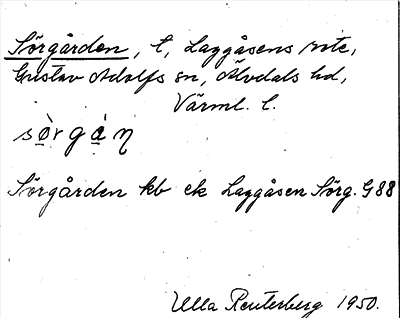 Sörgården, l, Laggåsens rote,
Gustav Adolfs sn, Älvdals hd,
Värml. l.
sørgàṇ
Sörgården kb ek Laggåsen Sörg. G88
Ulla Reuterberg 1950.